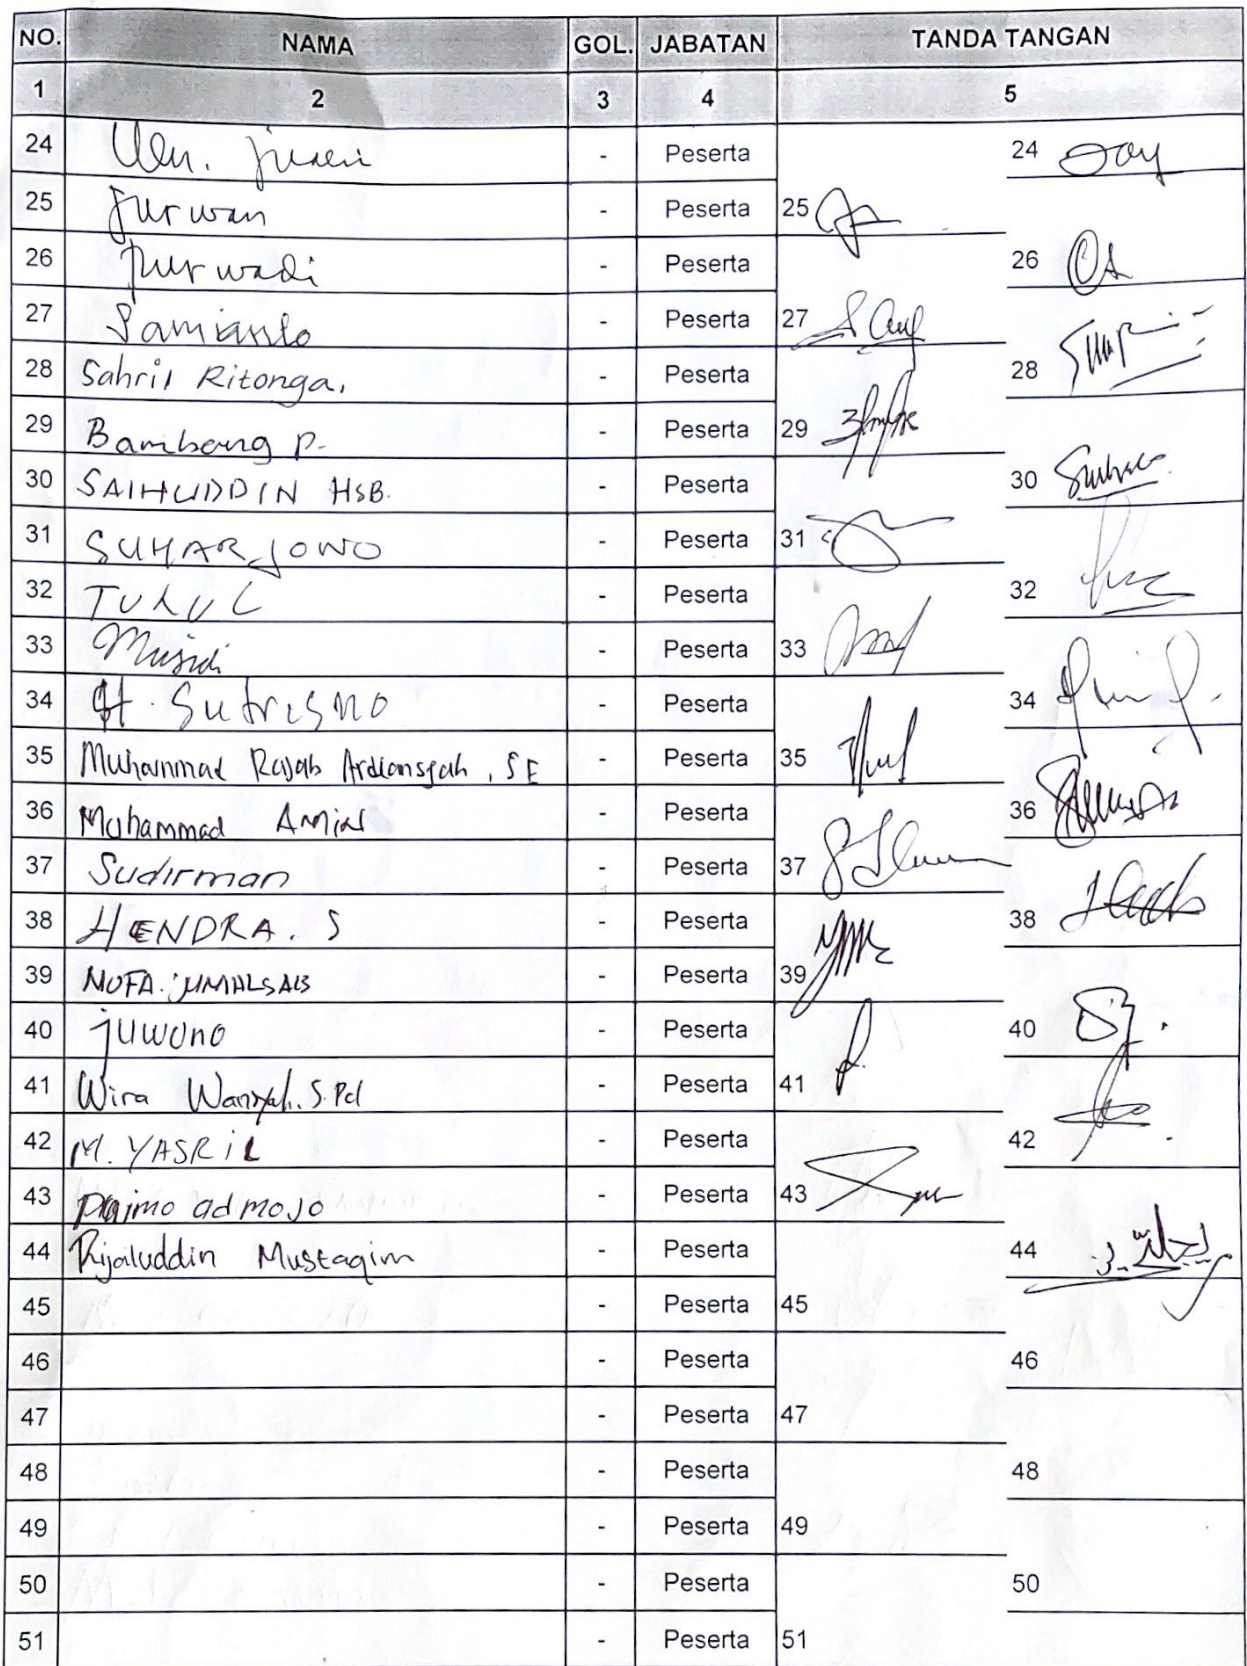 NO. NAMA GOL. JABATAN TANDA TANGAN
1 2 3 4 5
24 - Peserta 24
25 Jurwan - Peserta 25
26 Purwadi - Peserta 26
27 Samianto - Peserta 27
28 Sahril Ritonga. - Peserta 28
29 Bambang P. - Peserta 29
30 SAIHUDDIN HSB. - Peserta 30
31 SUHARJOWO - Peserta 31
32 TULUL - Peserta 32
33 Musidi - Peserta 33
34 H. Sutrisno - Peserta 34
35 Muhammad Rajab Ardiansyah, SE - Peserta 35
36 Muhammad Amin - Peserta 36
37 Sudirman - Peserta 37
38 HENDRA. S - Peserta 38
39 - Peserta 39
40 juwono - Peserta 40
41 Wira Wansyah. S.Pd - Peserta 41
42 M. YASRIL - Peserta 42
43 Paimo admojo - Peserta 43
44 Rijaluddin Mustaqim - Peserta 44
45 - Peserta 45
46 - Peserta 46
47 - Peserta 47
48 - Peserta 48
49 - Peserta 49
50 - Peserta 50
51 - Peserta 51